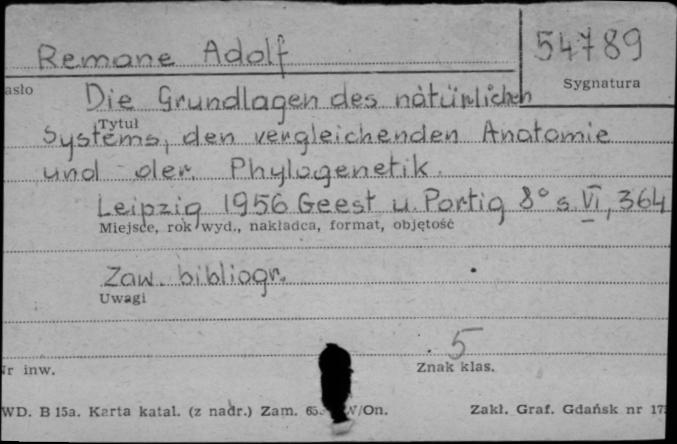 Remane Adolf
54789
asło
Sygnatura
Die Grundlagen des natürlichen
Tytuł
Systems, den vergleichenden Anatomie
und der Phylogenetik.
Leipzig 1956 Geest u. Portig 8° s. VI, 364
Miejsce, rok wyd., nakładca, format, objętość
Zaw. bibliogr.
Uwagi
5
Nr inw.
Znak klas.
WD. B 15a. Karta katal. (z nadr.) Zam. /On.
Zakł. Graf. Gdańsk nr